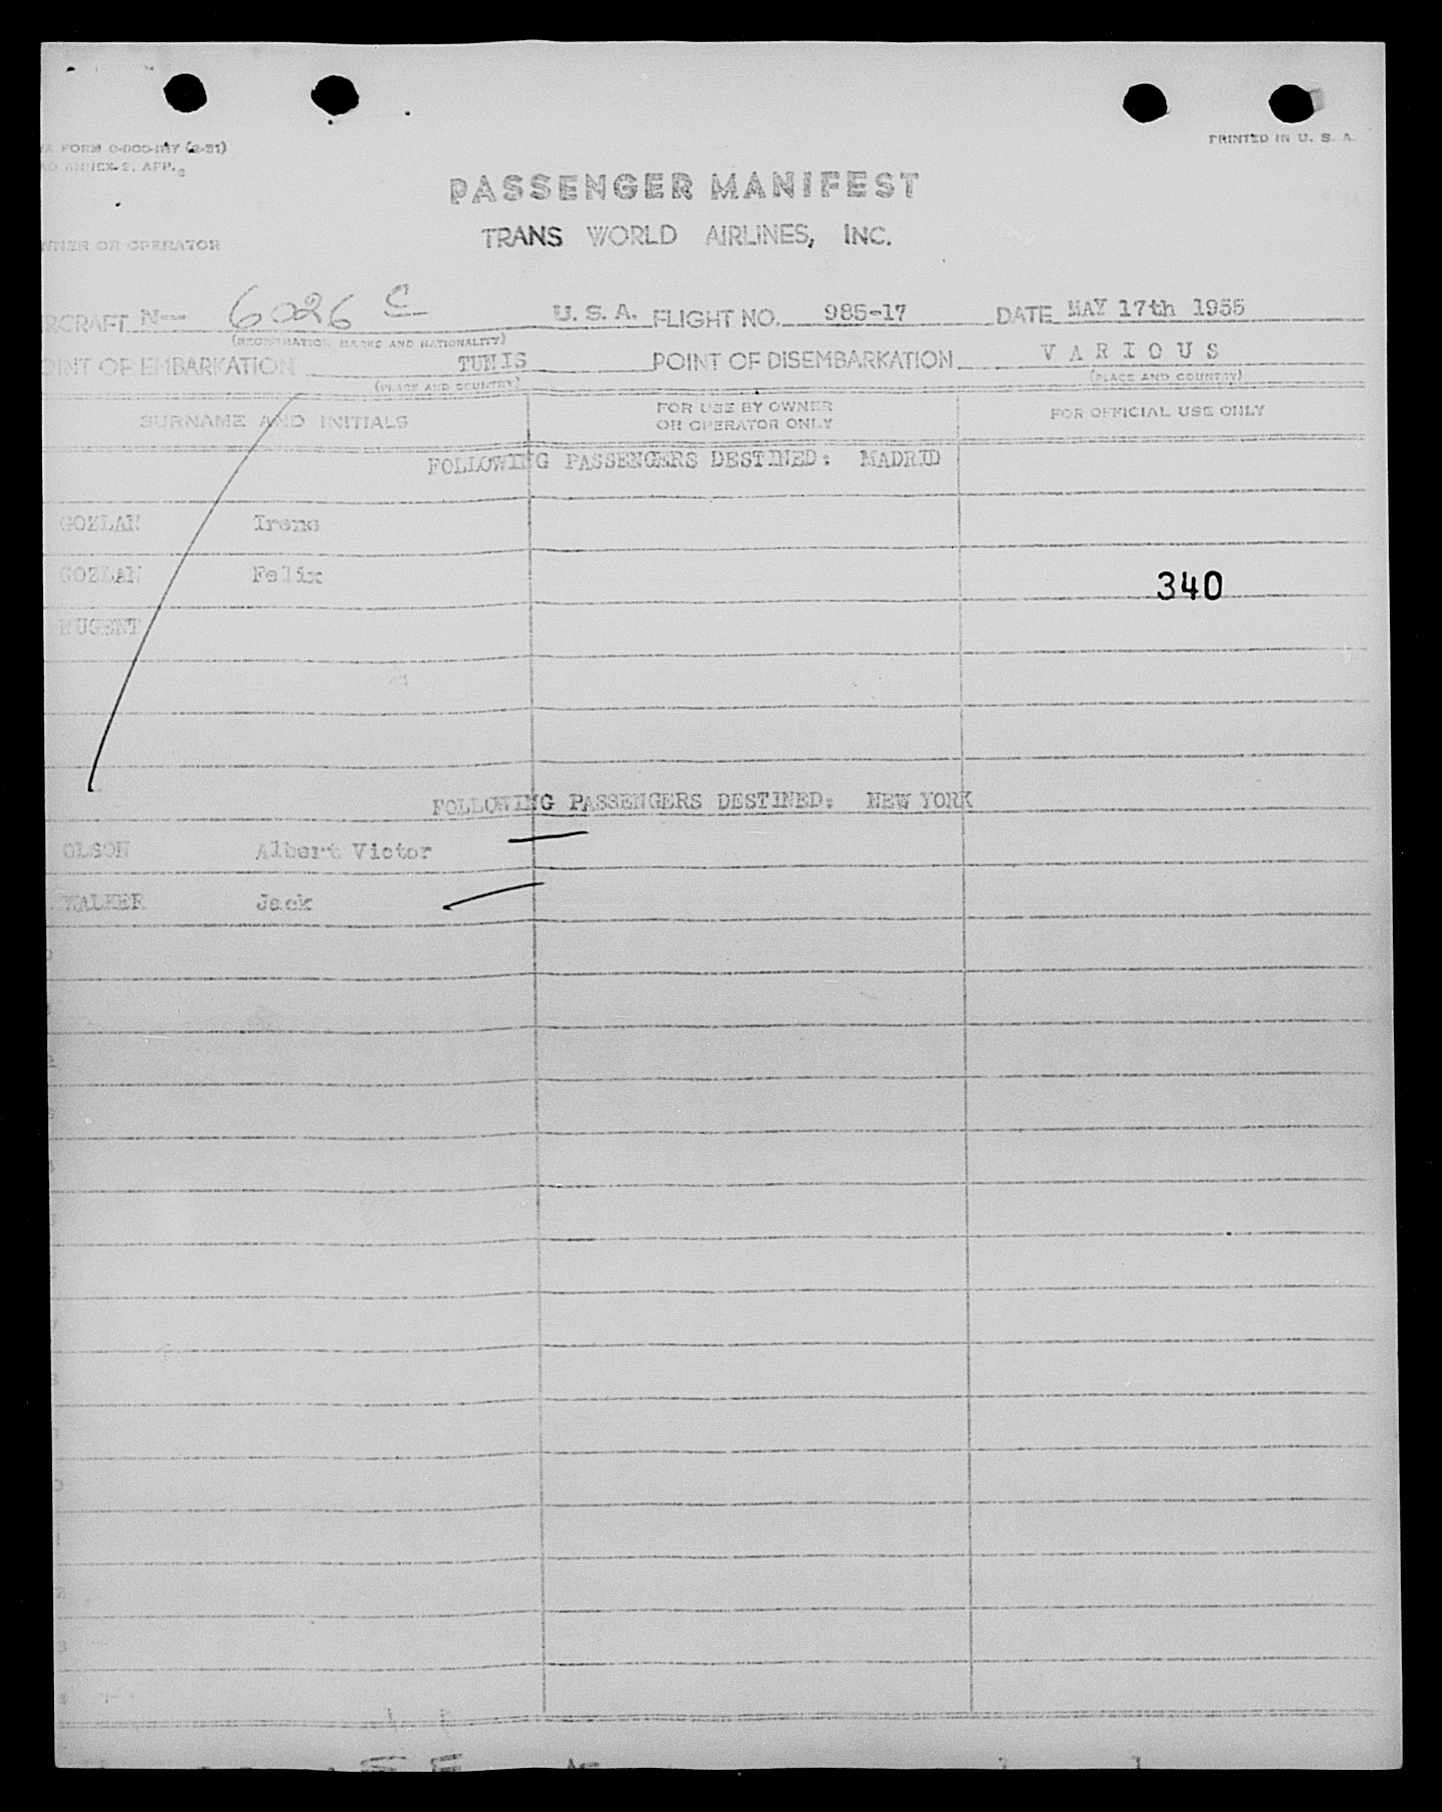 PRINTED IN U. S. A.
FORM
ANNEX-9, APP.
PASSENGER MANIFEST
TRANS WORLD AIRLINES, INC.
OWNER OR OPERATOR
AIRCRAFT N-- 6026 C U. S. A. FLIGHT NO. 985-17 DATE MAY 17th 1955
(REGISTRATION MARKS AND NATIONALITY)
POINT OF EMBARKATION TUNIS POINT OF DISEMBARKATION VARIOUS
(PLACE AND COUNTRY) (PLACE AND COUNTRY)
SURNAME AND INITIALS FOR USE BY OWNER OR OPERATOR ONLY FOR OFFICIAL USE ONLY
FOLLOWING PASSENGERS DESTINED: MADRID
GOZLAN Irene
GOZLAN Felix
340
NUGENT
FOLLOWING PASSENGERS DESTINED: NEW YORK
OLSON Albert Victor
WALKER Jack